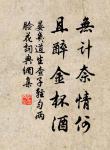 無計奈情何
且醉金杯酒
晏幾道生查子輕勻兩
臉花詞典網集